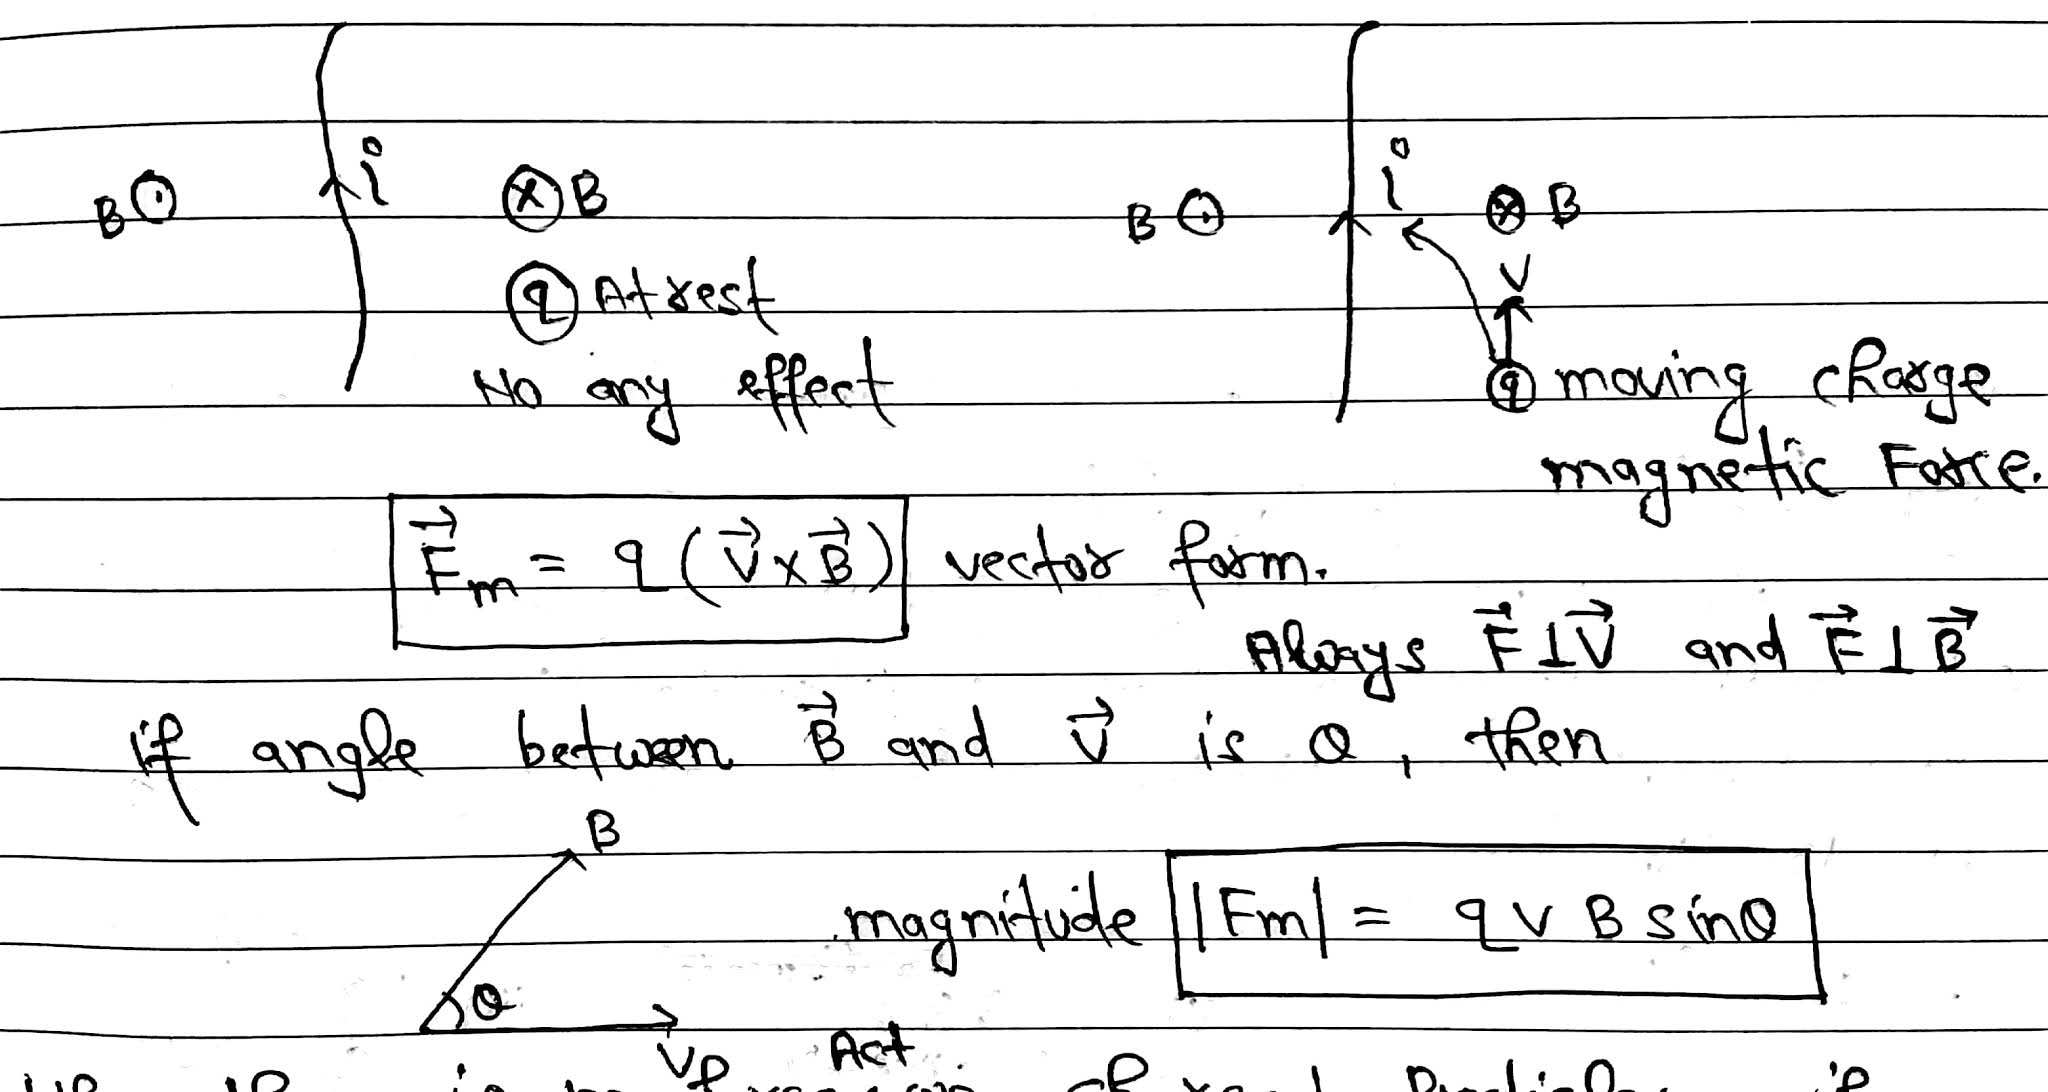 B ⊙ i ⊗ B B ⊙ i ⊗ B
q At rest V
No any effect q moving charge
magnetic Force.
F⃗m = q (V⃗ × B⃗) vector form.
Always F⃗ ⊥ V⃗ and F⃗ ⊥ B⃗
if angle between B⃗ and V⃗ is θ, then
B
magnitude |Fm| = q v B sinθ
θ
V Act